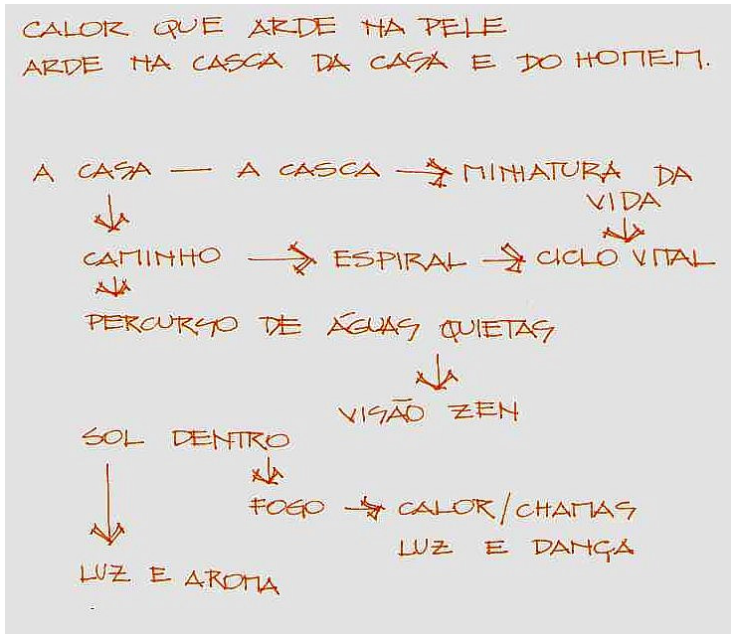 CALOR QUE ARDE NA PELE
ARDE NA CASCA DA CASA E DO HOMEM.
A CASA — A CASCA → MINIATURA DA
VIDA
CAMINHO → ESPIRAL → CICLO VITAL
PERCURSO DE ÁGUAS QUIETAS
VISÃO ZEN
SOL DENTRO
FOGO → CALOR/CHAMAS
LUZ E DANÇA
LUZ E AROMA